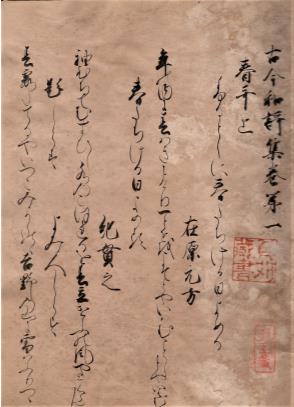 古今和謌集巻第一
春哥上
ふるとしに春たちける日よめる
在原元方
年の内に春はきにけり一とせをこそとやいはむことしとやいはむ
春たちける日よめる
紀貫之
袖ひちてむすひし水のこほれるを春立けふの風やとくらん
題しらす よみ人しらす
春霞たてるやいつこみよしのゝ吉野の山に雪はふりつゝ